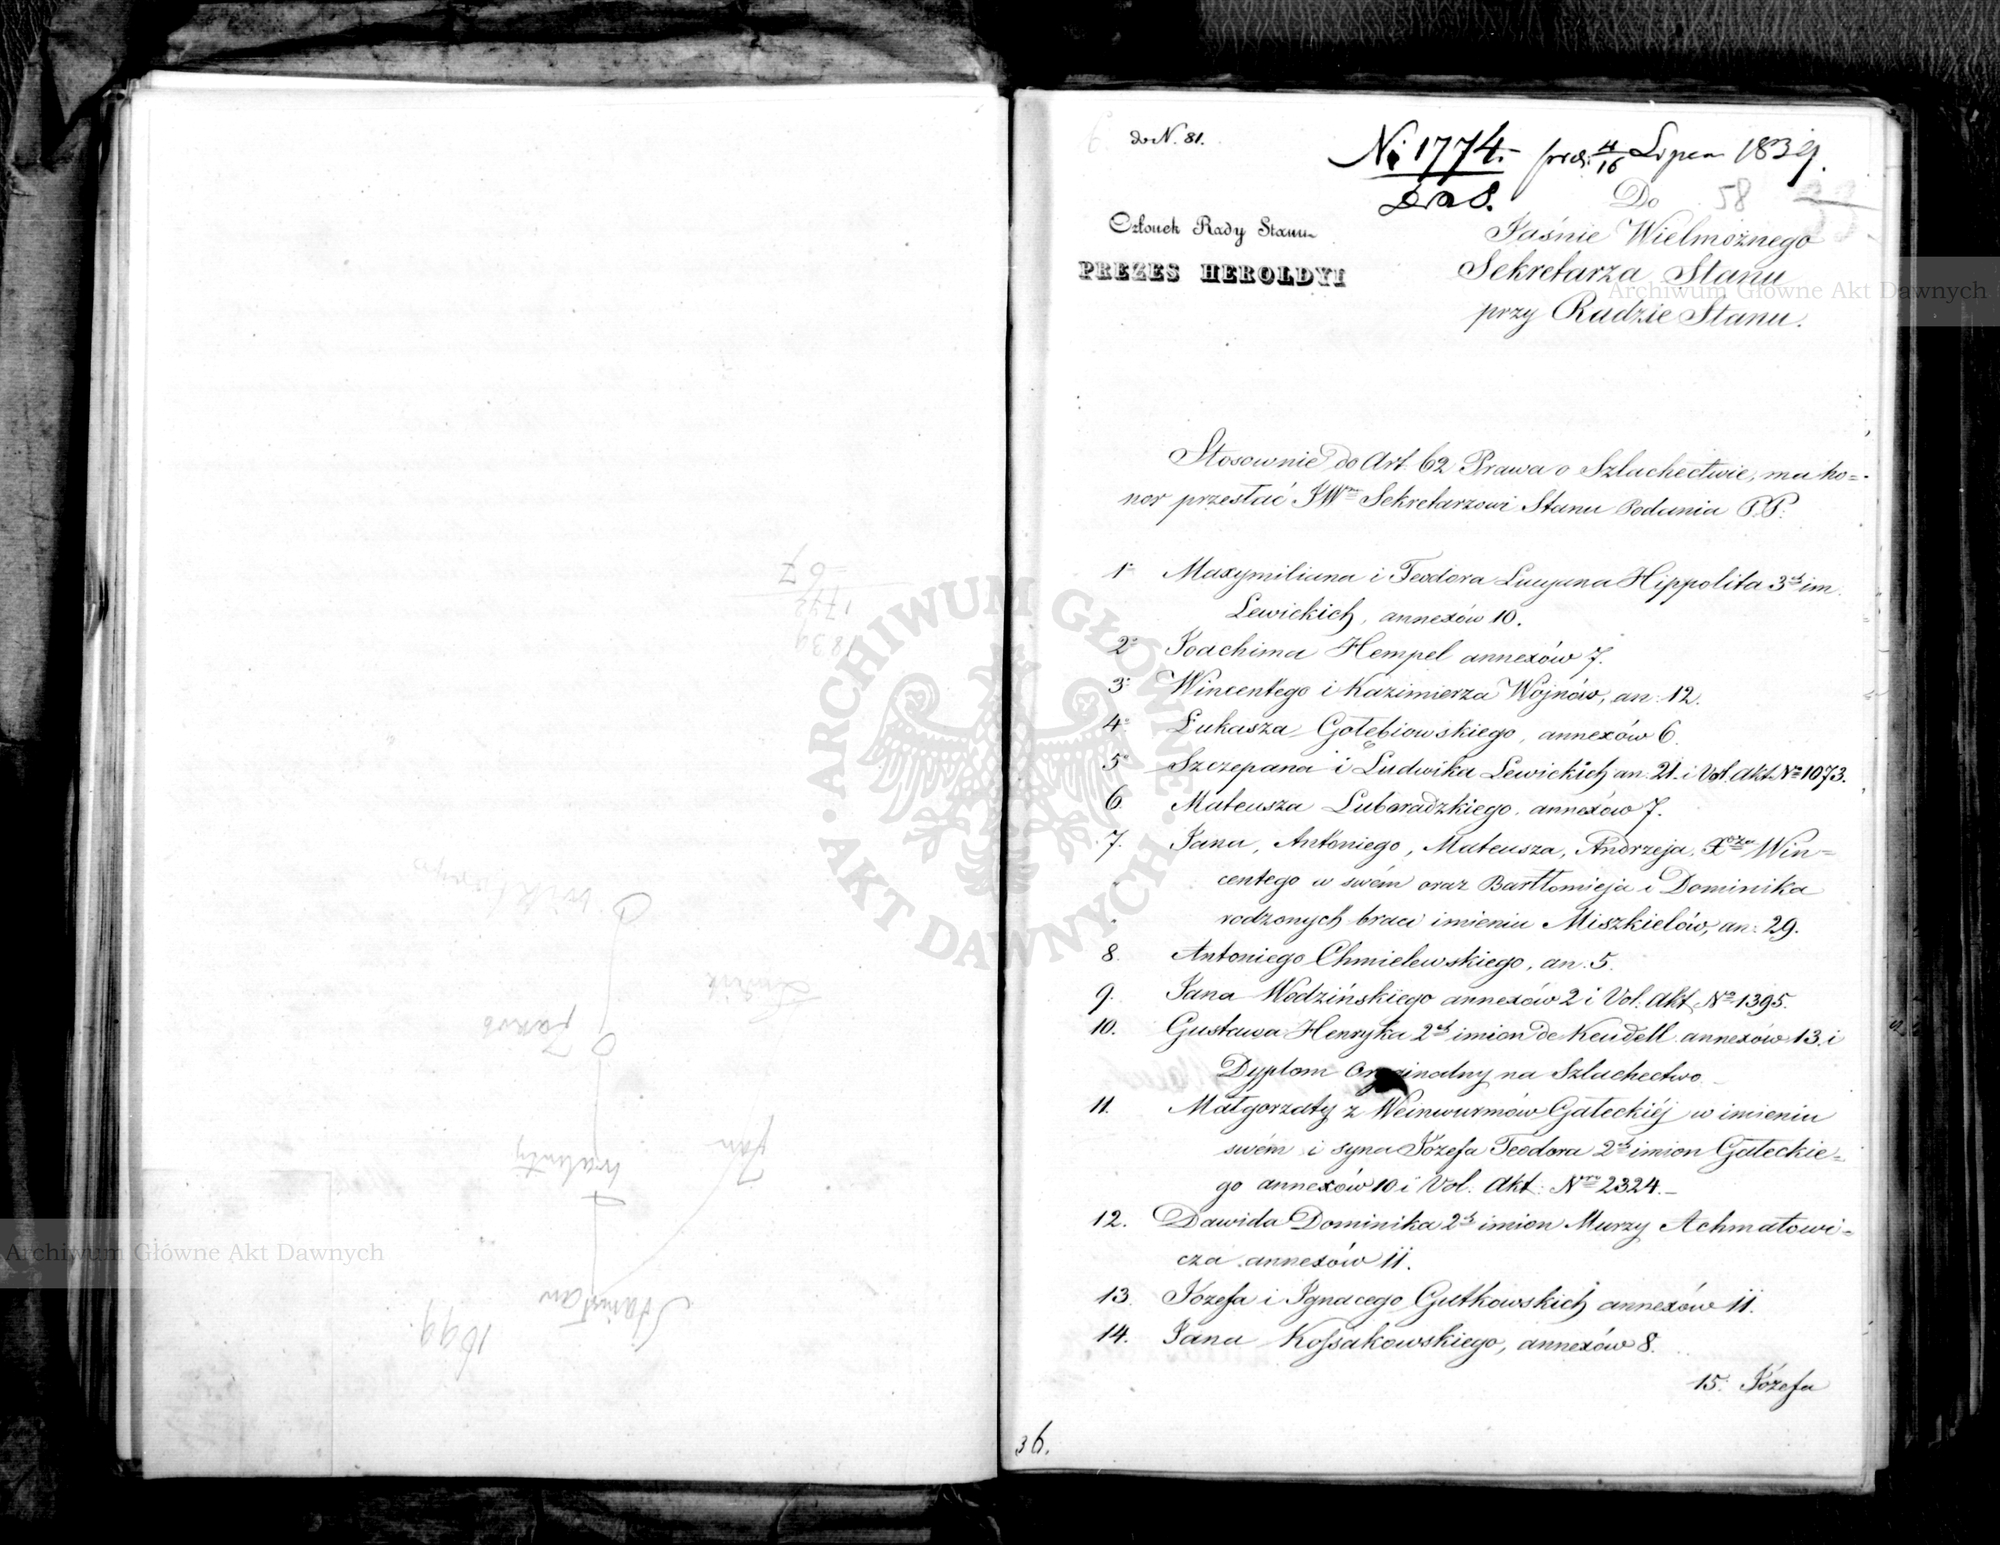 do N. 81.
N: 1774. prez. 4/16 Lipca 1839.
Do 58
Członek Rady Stanu
PREZES HEROLDYI
Jaśnie Wielmożnego
Sekretarza Stanu
przy Radzie Stanu.
Stosownie do Art. 62 Prawa o Szlachectwie, ma ho=
nor przesłać JWmu Sekretarzowi Stanu Podania P.P:
1o Maxymiliana i Teodora Lucyana Hippolita 3ch im.
Lewickich, annexów 10.
2o Joachima Hempel annexów 7.
3o Wincentego i Kazimierza Wojnów, an: 12.
4o Łukasza Gołębiowskiego, annexów 6.
5o Szczepana i Ludwika Lewickich an: 21. i Vol. Akt No 1073.
6. Mateusza Luboradzkiego, annexów 7.
7. Jana, Antoniego, Mateusza, Andrzeja, Xdza Win=
centego w swém oraz Bartłomieja i Dominika
rodzonych braci imieniu Miszkielów, an: 29.
8. Antoniego Chmielewskiego, an. 5.
9. Jana Wodzińskiego annexów 2 i Vol: Akt No 1395.
10. Gustawa Henryka 2ch imion de Keudell annexów 13. i
Dyplom Oryginalny na Szlachectwo.
11. Małgorzaty z Weinwurmów Gałeckiéj w imieniu
swém i syna Józefa Teodora 2ch imion Gałeckie=
go annexów 10 i Vol: Akt: Nro 2324.
12. Dawida Dominika 2ch imion Murzy Achmatowi=
cza annexów 11.
13. Józefa i Ignacego Gutkowskich annexów 11.
14. Jana Kossakowskiego, annexów 8.
15. Józefa
36.
1839
1772
67
Jakób
Jan
Walenty
Stanisław
1699
ARCHIWUM GŁÓWNE AKT DAWNYCH
Archiwum Główne Akt Dawnych
Archiwum Główne Akt Dawnych